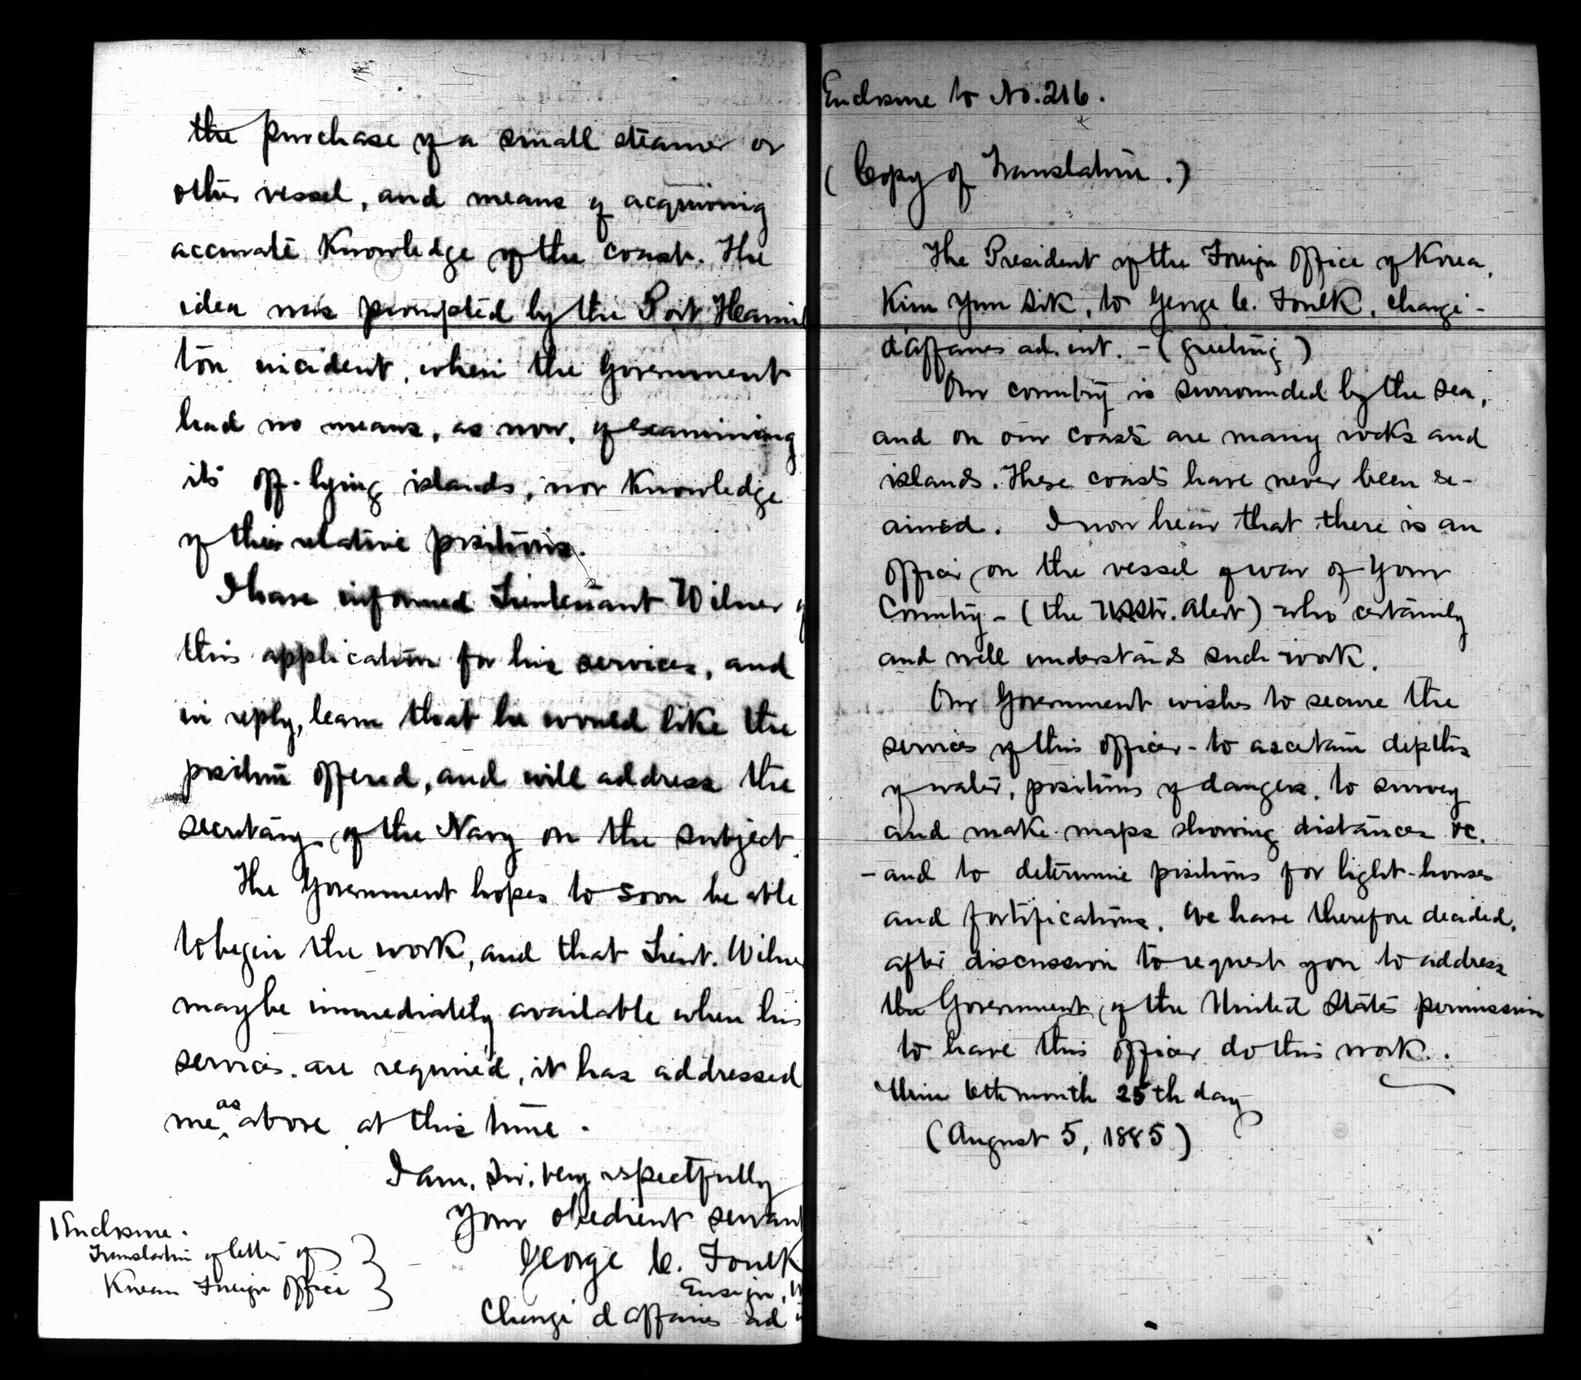 the purchase of a small steamer or
other vessel, and means of acquiring
accurate knowledge of the coast. The
idea was prompted by the Port Hamil
ton incident, when the Government
had no means, as now, of examining
its off-lying islands, nor knowledge
of their relative positions.
I have informed Lieutenant Wilner of
this application for his services, and
in reply, learn that he would like the
position offered, and will address the
Secretary of the Navy on the subject.
The Government hopes to soon be able
to begin the work, and that Lieut. Wilne
may be immediately available when his
services are required, it has addressed
me as above at this time.
I am, Sir, very respectfully
Your obedient servant
George C. Foulk
Ensign,
Chargé d'affaires ad
1 Enclosure.
Translation of letter of
Korean Foreign Office
Enclosure to No. 216.
(Copy of Translation.)
The President of the Foreign Office of Korea,
Kim Yun Sik, to George C. Foulk, chargé-
d'affaires ad. int. - (greeting)
Our country is surrounded by the sea,
and on our coasts are many rocks and
islands. These coasts have never been ex-
amined. I now hear that there is an
officer on the vessel of war of your
Country - (the U.S.Str. Alert) who certainly
and well understands such work.
Our Government wishes to secure the
services of this officer - to ascertain depths
of water, positions of dangers, to survey
and make maps showing distances &c.
- and to determine positions for light-houses
and fortifications. We have therefore decided,
after discussion to request you to address
the Government of the United States permission
to have this officer do this work.
6th month 25th day
(August 5, 1885)